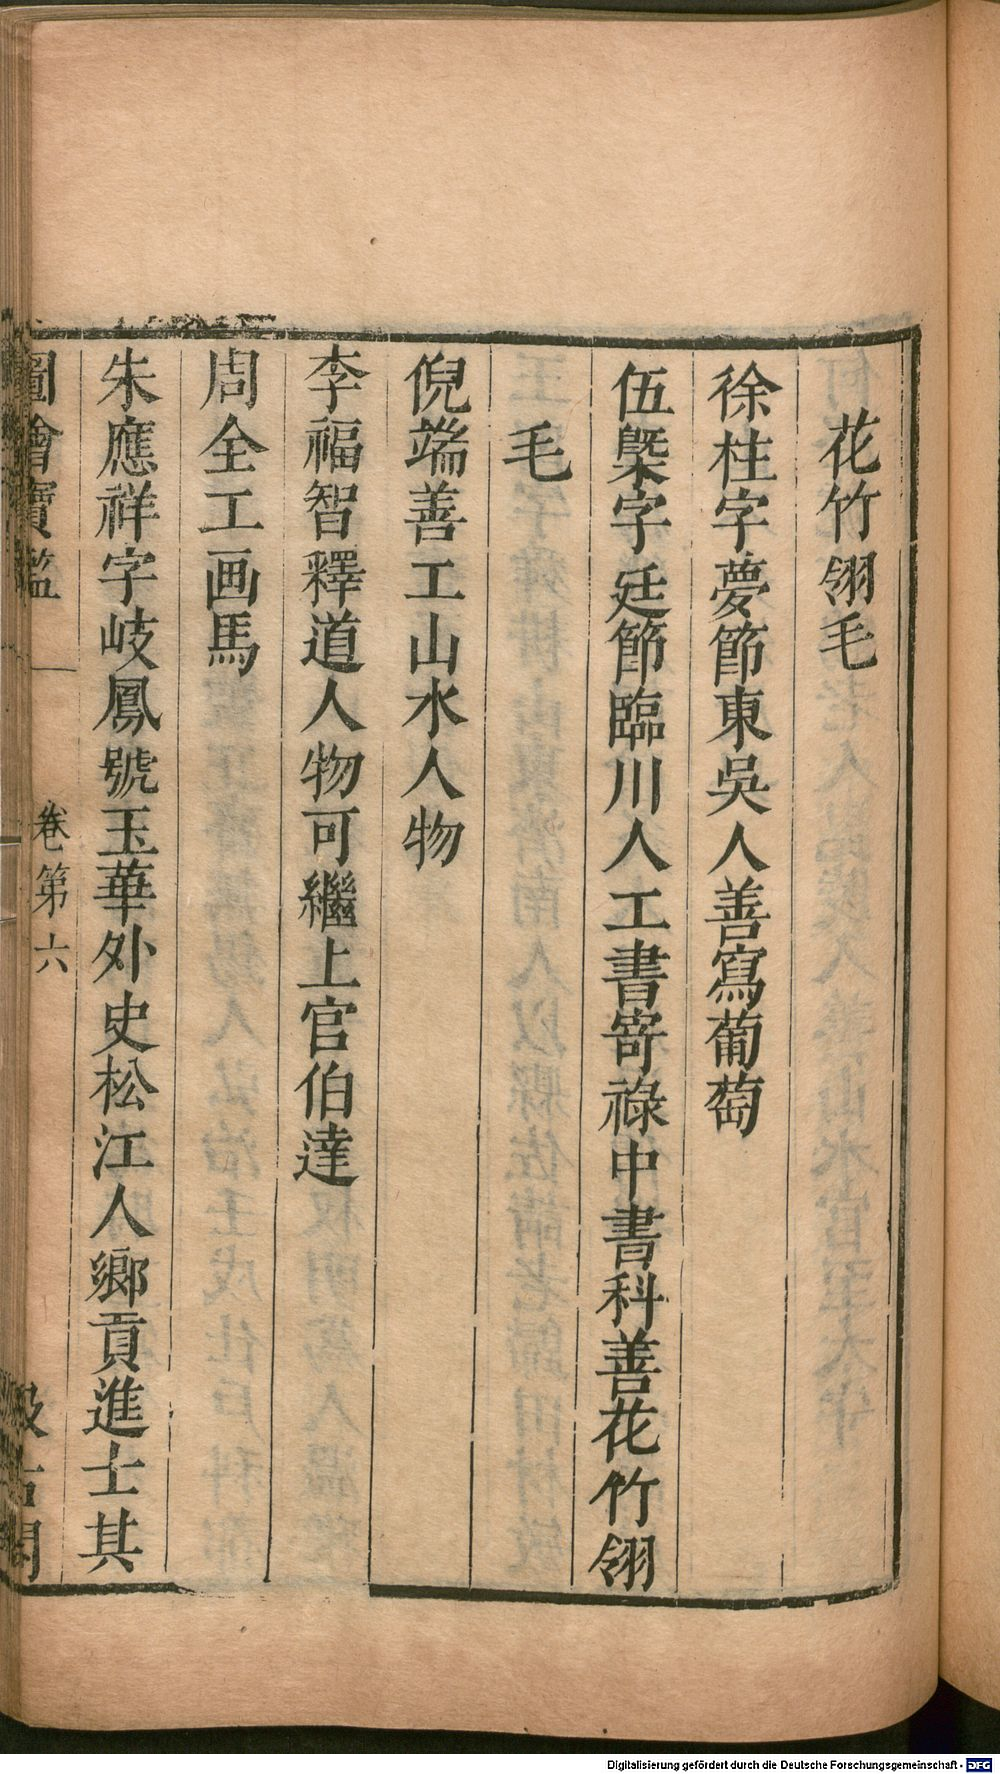 花竹翎毛
徐柱字夢節東吳人善寫葡萄
伍槩字廷節臨川人工書寄祿中書科善花竹翎
毛
倪端善工山水人物
李福智釋道人物可繼上官伯達
周全工画馬
朱應祥字岐鳳號玉華外史松江人鄉貢進士其
圖繪寶鑑 卷第六 汲古閣
Digitalisierung gefördert durch die Deutsche Forschungsgemeinschaft - DFG